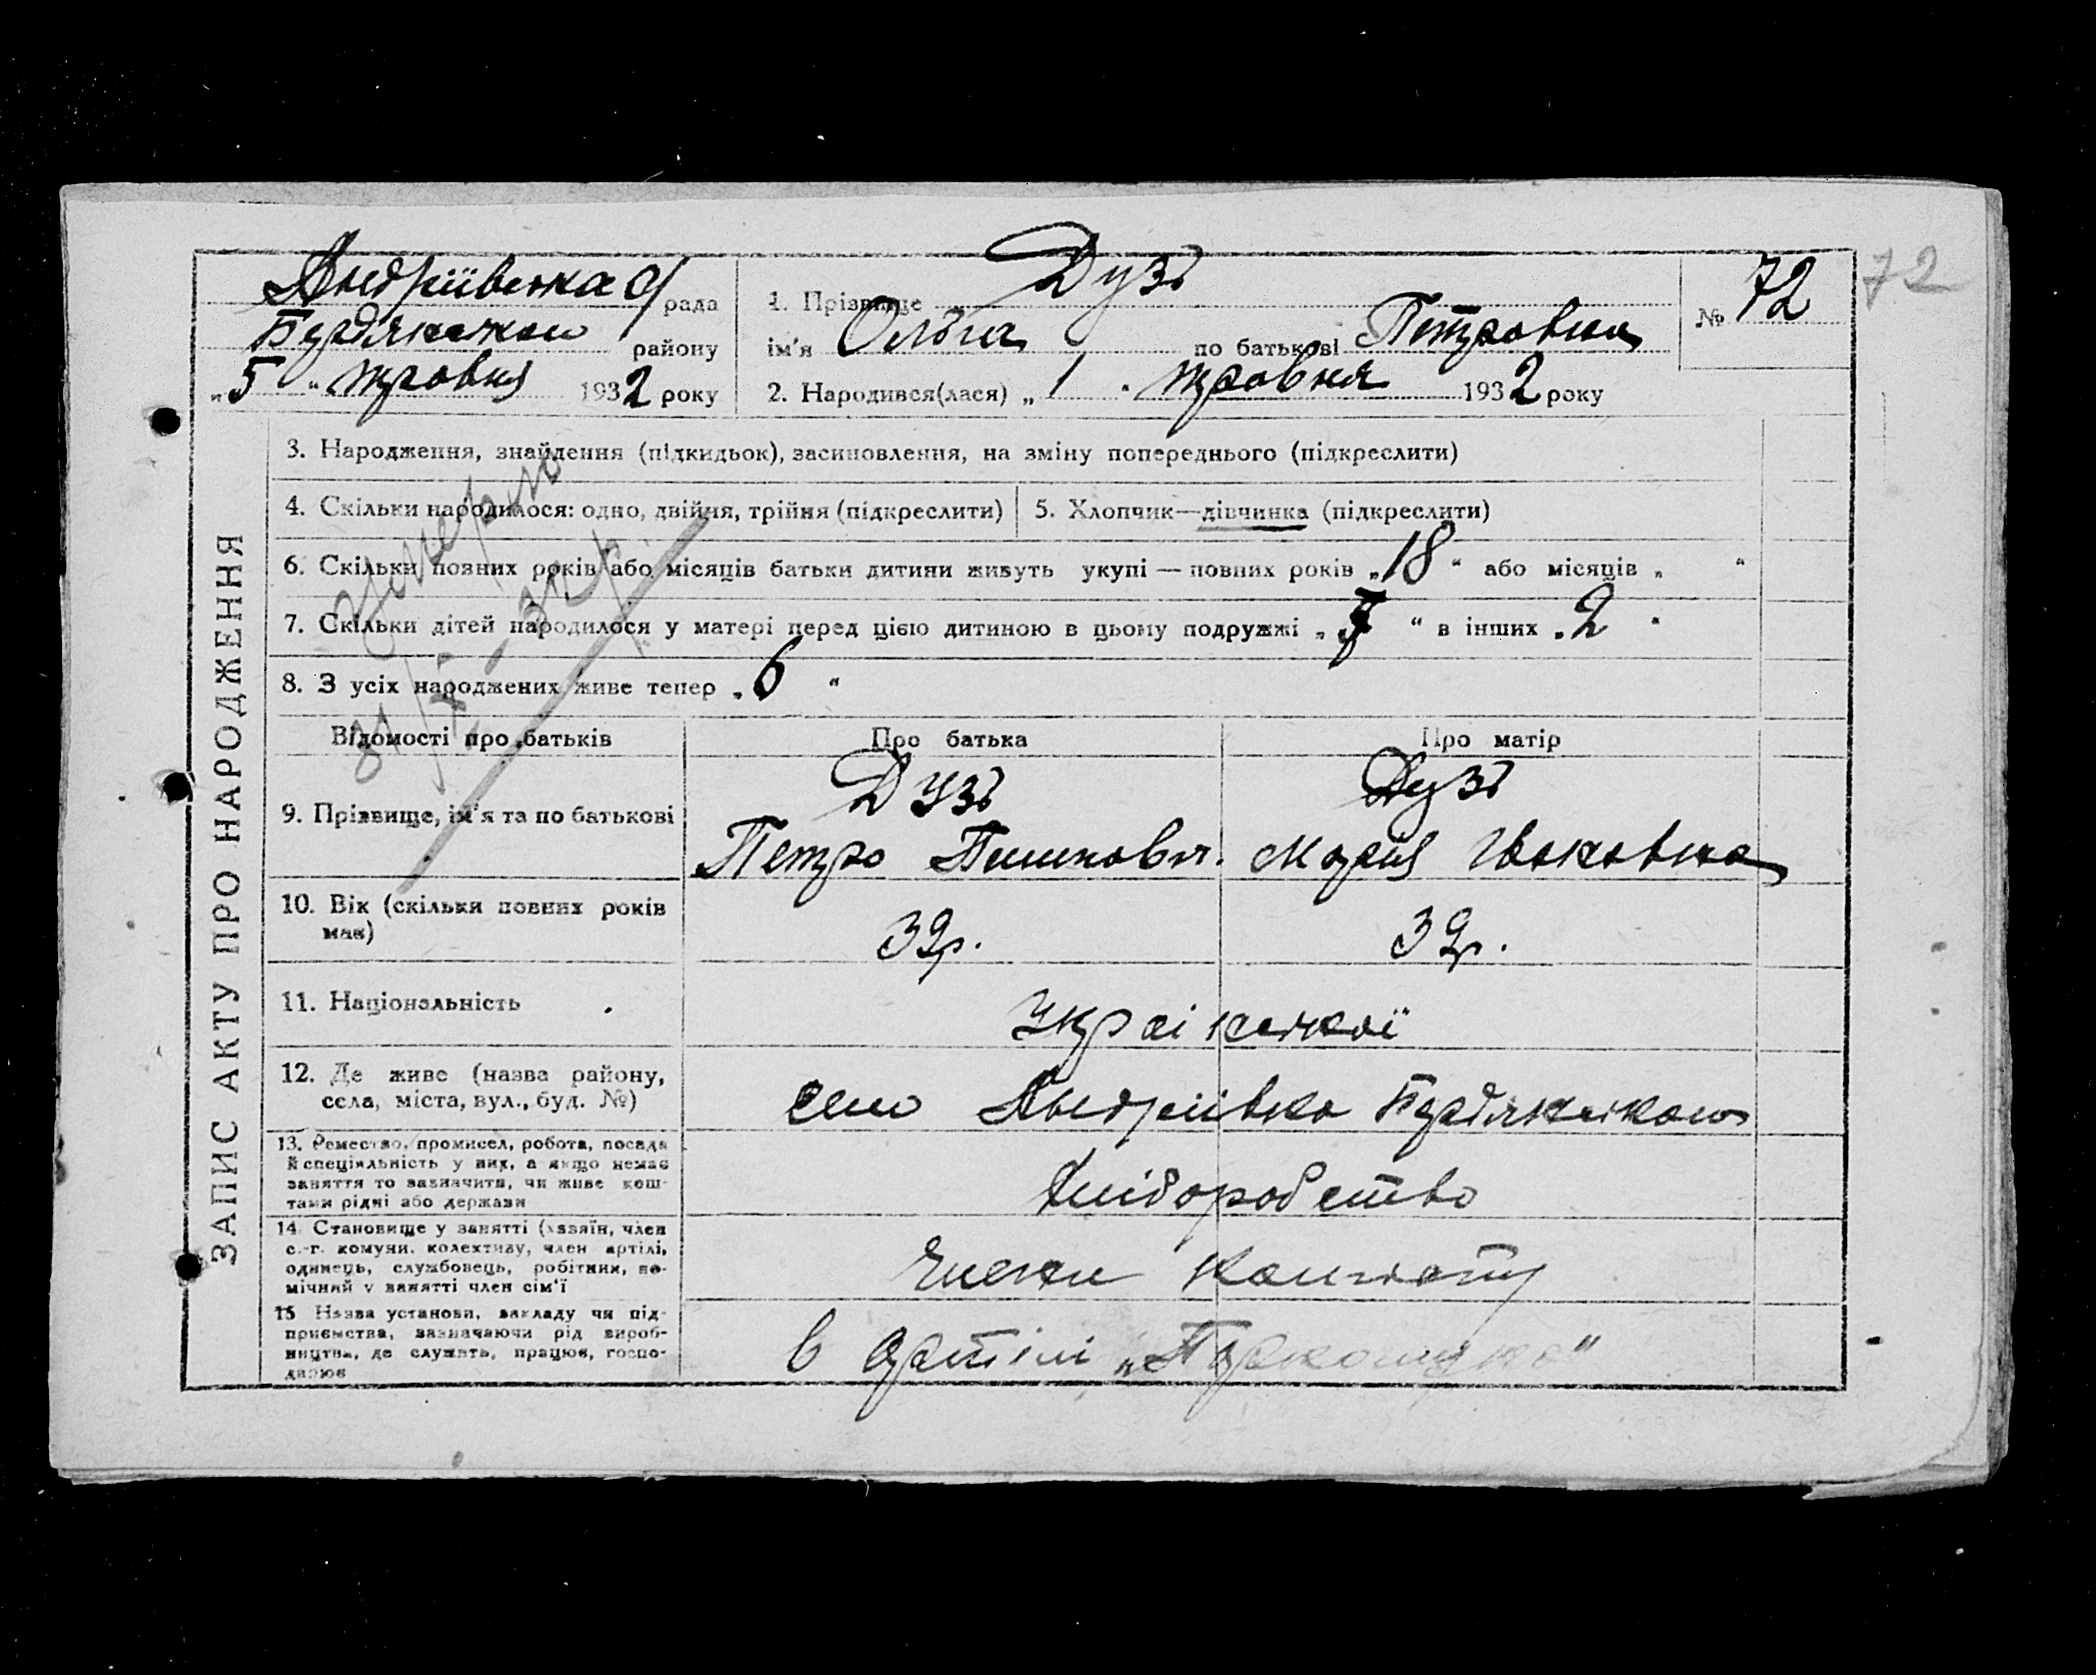 Андріївська с/рада
1. Прізвище Дузь
№ 72
72
Бердянськ району
ім'я Ольга по батькові Петровна
„5“ травня 1932 року
2. Народився(лася) „1“ травня 1932 року
ЗАПИС АКТУ ПРО НАРОДЖЕННЯ
3. Народження, знайдення (підкидьок), засиновлення, на зміну попереднього (підкреслити)
4. Скільки народилося: одно, двійня, трійня (підкреслити)
5. Хлопчик—дівчинка (підкреслити)
6. Скільки повних років або місяців батьки дитини живуть укупі — повних років „18“ або місяців „ “
7. Скільки дітей народилося у матері перед цією дитиною в цьому подружжі „ “ в інших „2“
8. З усіх народжених живе тепер „6“
Умерло
32 р.
Відомості про батьків
Про батька
Про матір
9. Прізвище, ім'я та по батькові
Дузь
Петро
Дузь
Марія
10. Вік (скільки повних років має)
39р.
39р.
11. Національність
Української
12. Де живе (назва району, села, міста, вул., буд. №)
село Андріівка Бердянськ
13. Ремество, промисел, робота, посада й спеціяльність у них, а якщо немає заняття то зазначити, чи живе коштами рідні або держави
Хліборобство
14. Становище у занятті (хазяїн, член с.-г. комуни, колективу, член артілі, одинець, службовець, робітник, помічний у занятті член сім'ї
Члени колгоспу
15 Назва установи, закладу чи підприємства, зазначаючи рід виробництва, де служить, працює, господарює
в артілі